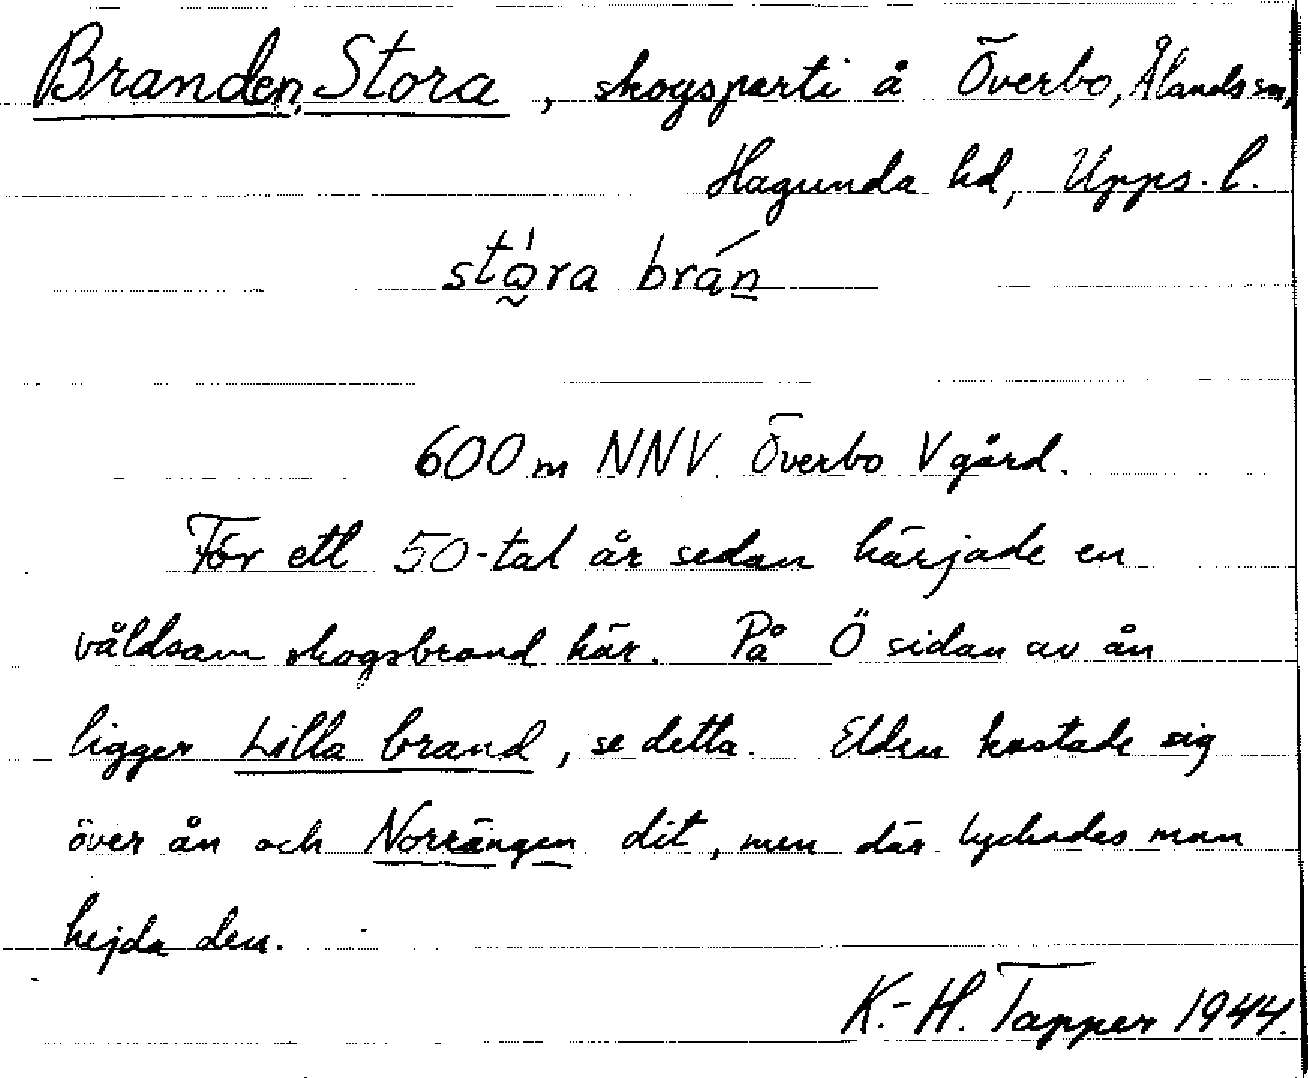 Branden, Stora, skogsparti å Överbo, Ålands sn,
Hagunda hd, Upps. l.
stώ̰ra brán̲
600 m NNV Överbo V gård.
För ett 50-tal år sedan härjade en
våldsam skogsbrand här. På Ö sidan av ån
ligger Lilla brand, se detta. Elden kastade sig
över ån och Norrängen dit, men där lyckades man
hejda den.
K.-H. Tapper 1944.